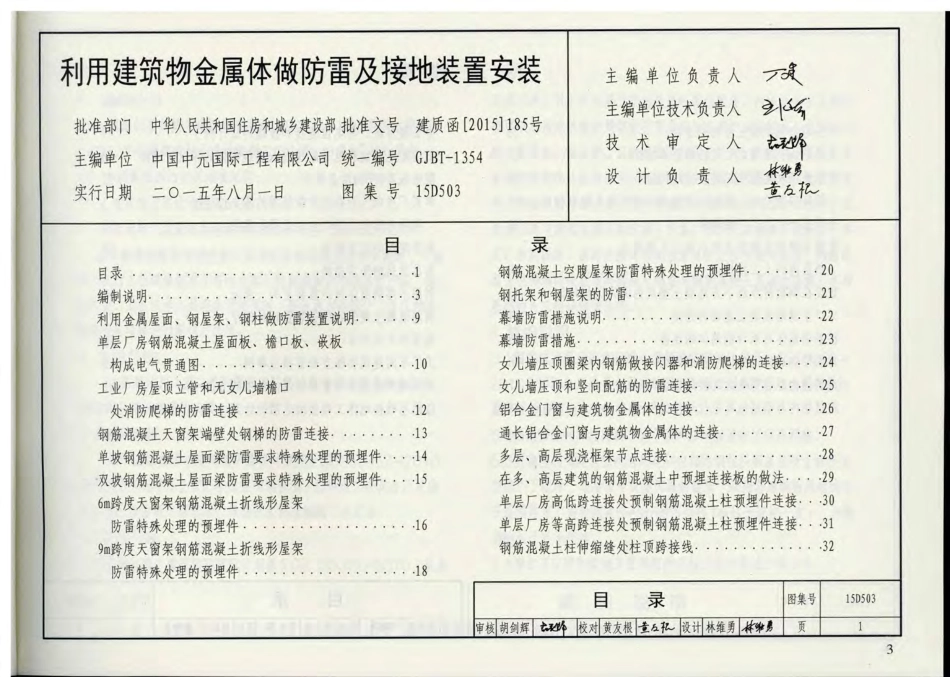 利用建筑物金属体做防雷及接地装置安装
批准部门 中华人民共和国住房和城乡建设部 批准文号 建质函[2015]185号
主编单位 中国中元国际工程有限公司 统一编号 GJBT-1354
实行日期 二〇一五年八月一日 图集号 15D503
主编单位负责人
主编单位技术负责人
技术审定人
设计负责人 林维勇
黄友根
目 录
目录 1
编制说明 3
利用金属屋面、钢屋架、钢柱做防雷装置说明 9
单层厂房钢筋混凝土屋面板、檐口板、嵌板
构成电气贯通图 10
工业厂房屋顶立管和无女儿墙檐口
处消防爬梯的防雷连接 12
钢筋混凝土天窗架端壁处钢梯的防雷连接 13
单坡钢筋混凝土屋面梁防雷要求特殊处理的预埋件 14
双坡钢筋混凝土屋面梁防雷要求特殊处理的预埋件 15
6m跨度天窗架钢筋混凝土折线形屋架
防雷特殊处理的预埋件 16
9m跨度天窗架钢筋混凝土折线形屋架
防雷特殊处理的预埋件 18
钢筋混凝土空腹屋架防雷特殊处理的预埋件 20
钢托架和钢屋架的防雷 21
幕墙防雷措施说明 22
幕墙防雷措施 23
女儿墙压顶圈梁内钢筋做接闪器和消防爬梯的连接 24
女儿墙压顶和竖向配筋的防雷连接 25
铝合金门窗与建筑物金属体的连接 26
通长铝合金门窗与建筑物金属体的连接 27
多层、高层现浇框架节点连接 28
在多、高层建筑的钢筋混凝土中预埋连接板的做法 29
单层厂房高低跨连接处预制钢筋混凝土柱预埋件连接 30
单层厂房等高跨连接处预制钢筋混凝土柱预埋件连接 31
钢筋混凝土柱伸缩缝处柱顶跨接线 32
目 录 图集号 15D503
审核 胡剑辉 校对 黄友根 黄友根 设计 林维勇 林维勇 页 1
3